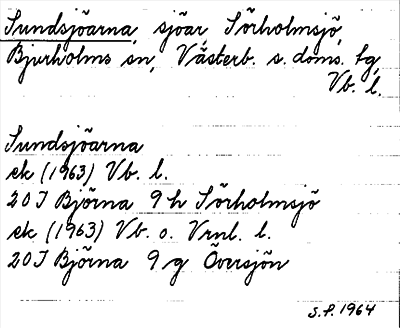 Sundsjöarna, sjöar, Sörholmsjö,
Bjurholms sn, Västerb. s. doms. tg,
Vb. l.
Sundsjöarna
ek (1963) Vb. l.
20J Björna 9h Sörholmsjö
ek (1963) Vb. o. Vrnl. l.
20J Björna 9g Översjön
S.P. 1964